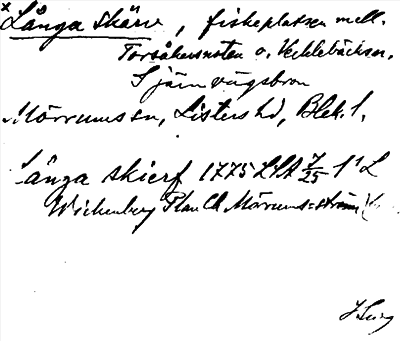 x Långa Skärv, fiskeplatsen mell.
Torsåkersnoten o. Vekklebäcksen,
Sjärnvägsbron
Mörrums sn, Listers hd, Blek. l.
Långa skierf 1775 LSA 7/25 1¹ L
Wickenberg Plan Ch Mörrums-ström